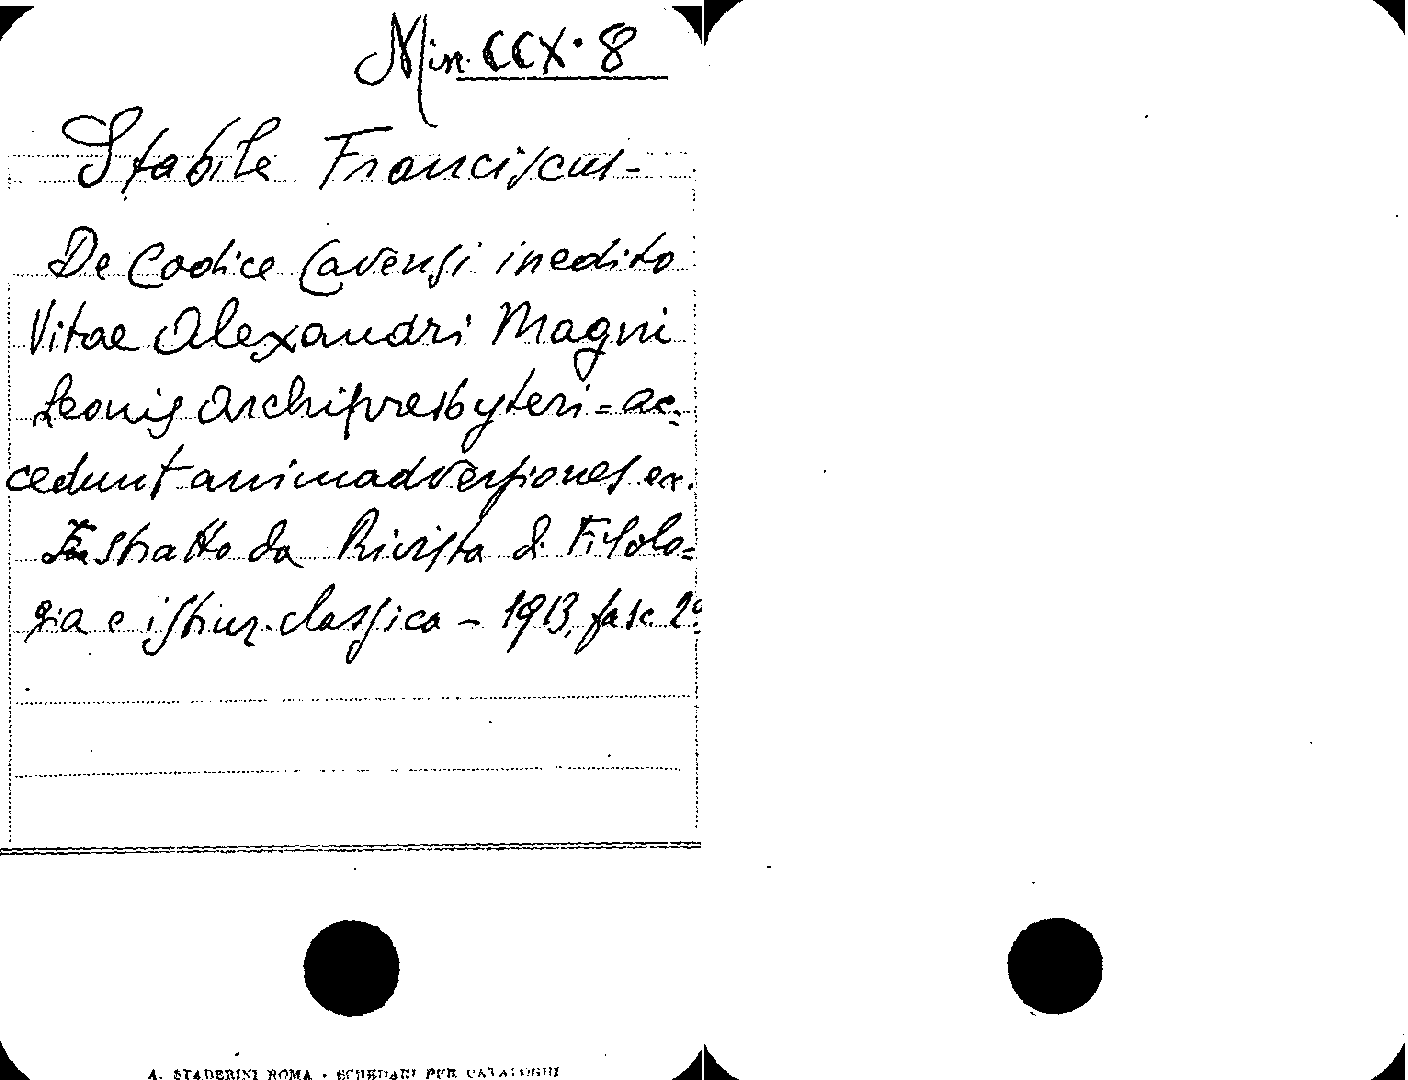 Misc. CCX. 8
Stabile Franciscus -
De Codice Cavensi inedito
Vitae Alexandri Magni
Leonis Archipresbyteri = ac=
cedunt animadversiones ex.
Estratto da Rivista di Filolo=
gia e istruz. classica - 1913, fasc 2º
A. STADERINI ROMA - SCHEDARI PER CATALOGHI